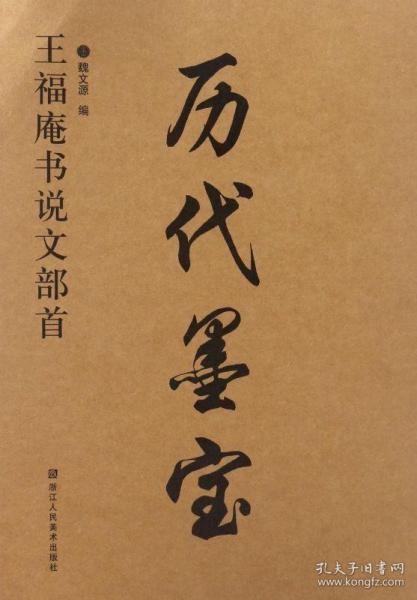 历代墨宝
王福庵书说文部首
魏文源 编
浙江人民美术出版社
孔夫子旧书网